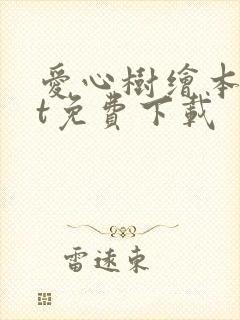 愛心樹繪本
t免費下載
雷遠東